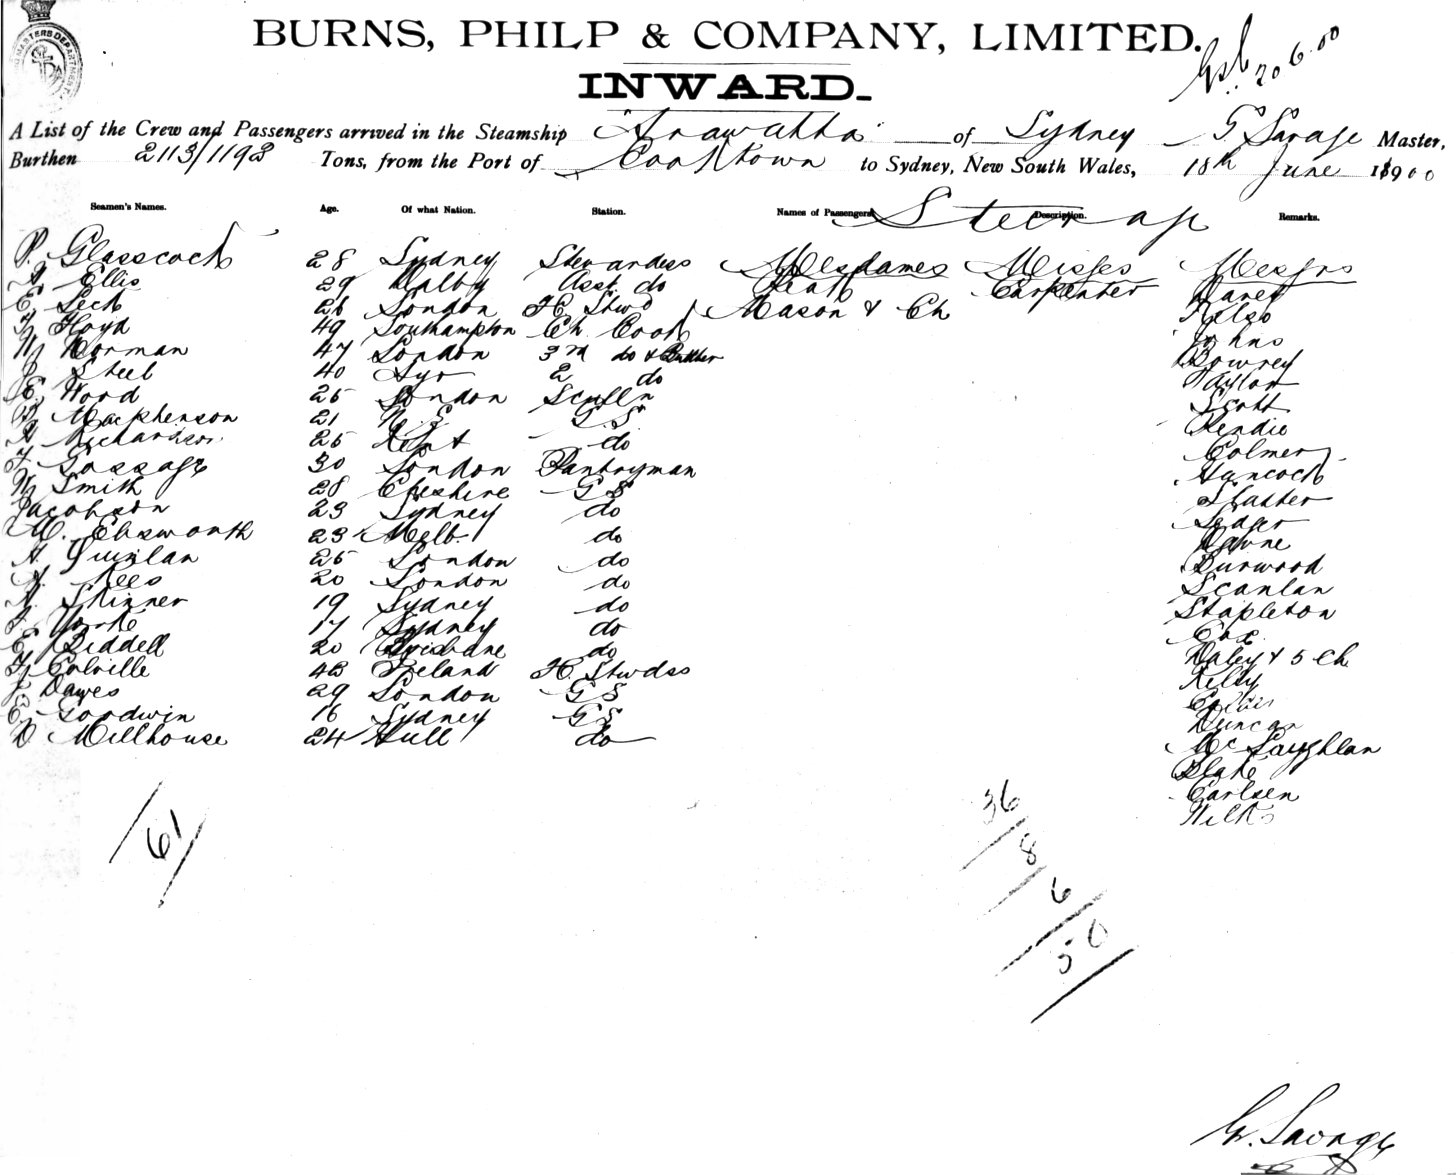 BURNS, PHILP & COMPANY, LIMITED.
INWARD.
20 6.00
A List of the Crew and Passengers arrived in the Steamship "Arawatta" of Sydney G Savage Master,
Burthen 2113/1193 Tons, from the Port of Cooktown to Sydney, New South Wales, 18th June 1900
Seamen's Names. Age. Of what Nation. Station. Names of Passengers. Description. Remarks.
Steerage
P. Glasscock 28 Sydney Stewardess Mesdames Misses Messrs
Ellis 29 Dalby Asst do Carpenter
E Leck 26 London Mason & Ch Kelso
Floyd 49 Southampton Ch Cook Johns
W Norman 47 London 3rd do & Butcher Bowrey
J Steel 40 Ayr 2 do Taylor
E. Word 25 London Sculln Scott
Macphenson 21 N S G S Rendie
Richardson 25 Kent do Colmer
F Gossage 30 London Pantryman Hancock
W Smith 28 Cheshire G S
Jacobson 23 Sydney do Ledger
M. Ebsworth 23 Melb do
A Quinlan 25 London do Burwood
A. Rees 20 London do Scanlan
A. Skinner 19 Sydney do Stapleton
Yorke 17 Sydney do Cox
E Riddell 20 Brisbane do Daley & 5 Ch
Colville 43 Ireland Kelly
J Dawes 29 London G S
E Goodwin 16 Sydney G S Duncan
D Millhouse 24 Hull do McLaughlan
Blake
Carlsen
Wilks
61
36
8
6
50
G. Savage